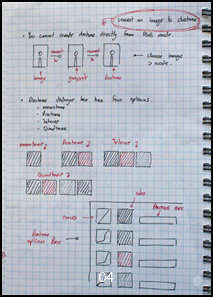 convert an image to duotone
• You cannot create duotone directly from RGB mode
convert to
convert to
choose image > mode.
image
grayscale
Duotone
• Duotone dialogue box has four options.
- monotone
- Duotone
- Tritone
- Quadtone
monotone
Duotone
Tritone
Quadtone
Duotone
options Box
04